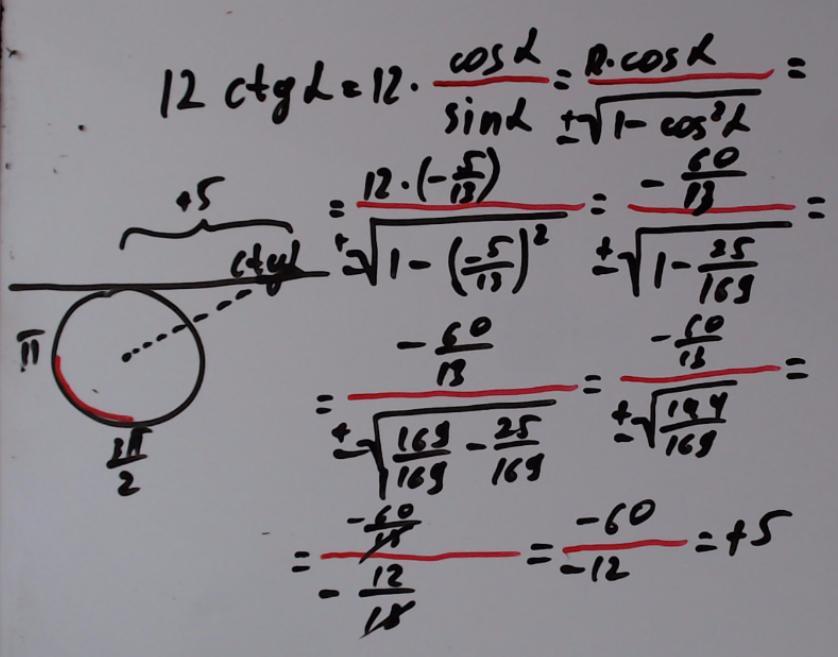 12 ctg α = 12 · cos α / sin α = 12 · cos α / ±√(1 - cos² α) =
= 12 · (-5/13) / ±√(1 - (-5/13)²) = -60/13 / ±√(1 - 25/169) =
+5
ctg α
π
3π/2
= -60/13 / ±√(169/169 - 25/169) = -60/13 / ±√(144/169) =
= -60/13 / -12/13 = -60 / -12 = +5